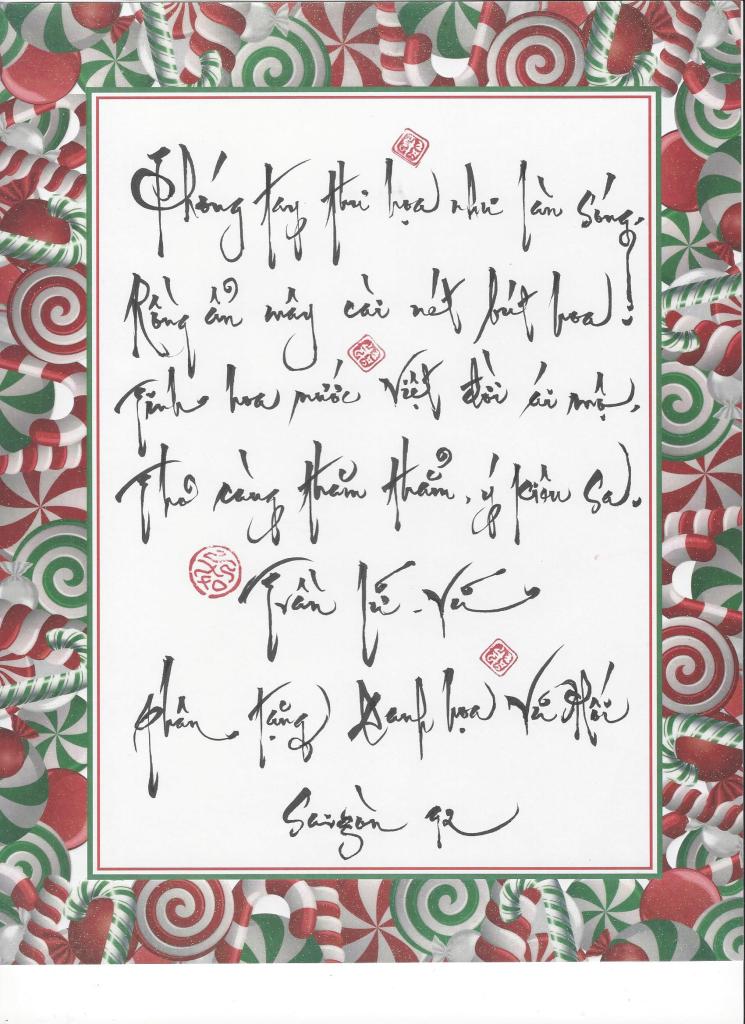 Phóng tay thư họa như làn sóng,
Rồng ẩn mây cài nét bút hoa.
Tinh hoa nước Việt đời ái mộ,
Thơ càng thăm thẳm, ý kiêu sa.
Trần Lữ-Vũ
thân tặng Danh họa Vũ Hối
Saigòn 92